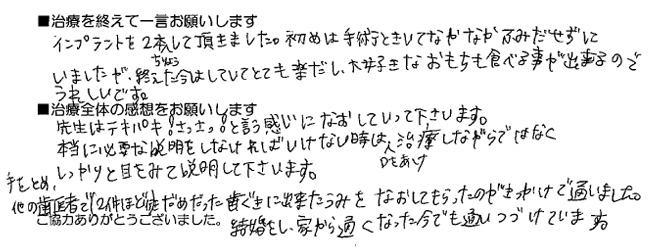 ■治療を終えて一言お願いします
インプラントを2本して頂きました。初めは手術ときいてなかなかふみだせずに
いましたが、終えた今はしていてとても楽だし、大好きなおもちも食べる事が出来るので
うれしいです。
■治療全体の感想をお願いします
先生はテキパキ!さっさっ!と言う感じになおしていって下さいます。
本当に必要な説明をしなければいけない時は、治療しながらではなく
手をとめ、口をあけ
しっかりと目をみて説明して下さいます。
他の歯医者で2件ほどだめだった歯ぐきに出来たうみをなおしてもらったのがきっかけで通いました。
ご協力ありがとうございました。
結婚をし、家から遠くなった今でも通いつづけています。